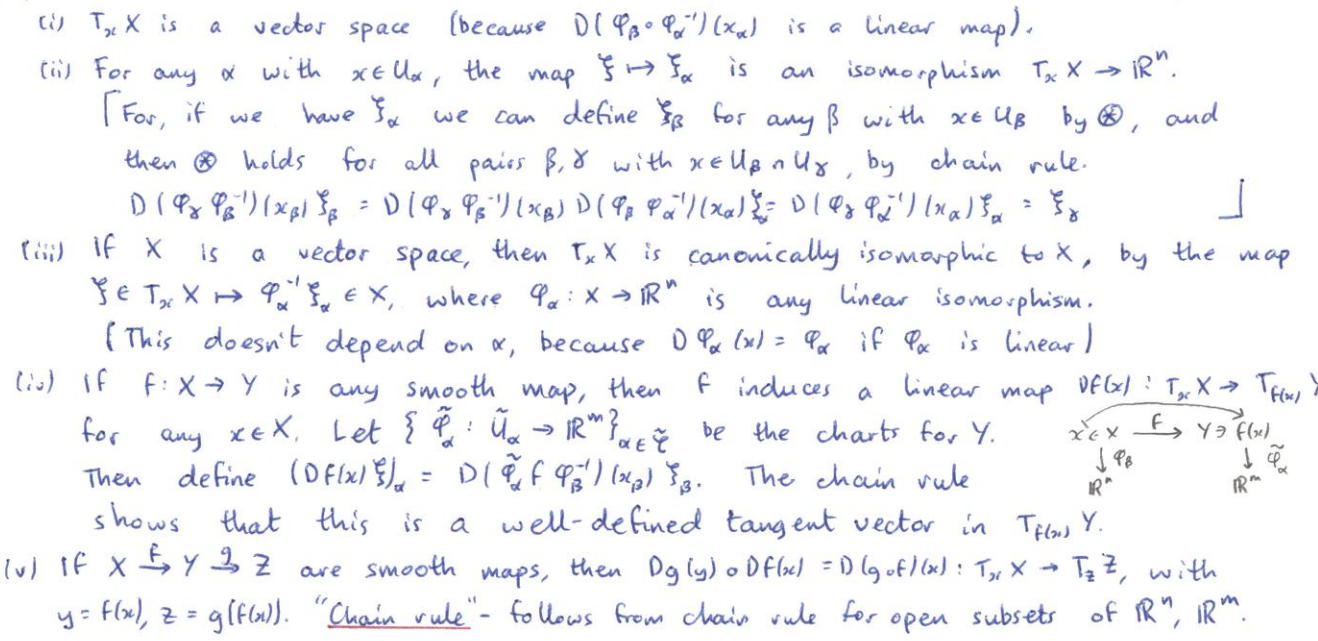 (i) TₓX is a vector space (because D(φ_β∘φ_α⁻¹)(x_α) is a linear map).
(ii) For any α with x∈U_α, the map ξ ↦ ξ_α is an isomorphism TₓX → ℝⁿ.
⌈For, if we have ξ_α we can define ξ_β for any β with x∈U_β by ⊛, and
then ⊛ holds for all pairs β,γ with x∈U_β∩U_γ, by chain rule.
D(φ_γ φ_β⁻¹)(x_β) ξ_β = D(φ_γ φ_β⁻¹)(x_β) D(φ_β φ_α⁻¹)(x_α)ξ_α = D(φ_γ φ_α⁻¹)(x_α)ξ_α = ξ_γ ⌋
(iii) If X is a vector space, then TₓX is canonically isomorphic to X, by the map
ξ∈TₓX ↦ φ_α⁻¹ξ_α ∈ X, where φ_α : X → ℝⁿ is any linear isomorphism.
(This doesn't depend on α, because Dφ_α(x) = φ_α if φ_α is linear)
(iv) If f: X → Y is any smooth map, then f induces a linear map Df(x) : TₓX → T_{f(x)} Y
for any x∈X. Let { φ̃_α : Ũ_α → ℝᵐ }_{α∈𝒞̃} be the charts for Y.
x∈X —f→ Y∋f(x)
↓ φ_β ↓ φ̃_α
ℝⁿ ℝᵐ
Then define (Df(x)ξ)_α = D(φ̃_α f φ_β⁻¹)(x_β) ξ_β. The chain rule
shows that this is a well-defined tangent vector in T_{f(x)} Y.
(v) If X —f→ Y —g→ Z are smooth maps, then Dg(y)∘Df(x) = D(g∘f)(x) : TₓX → T_z Z, with
y = f(x), z = g(f(x)). "Chain rule" - follows from chain rule for open subsets of ℝⁿ, ℝᵐ.